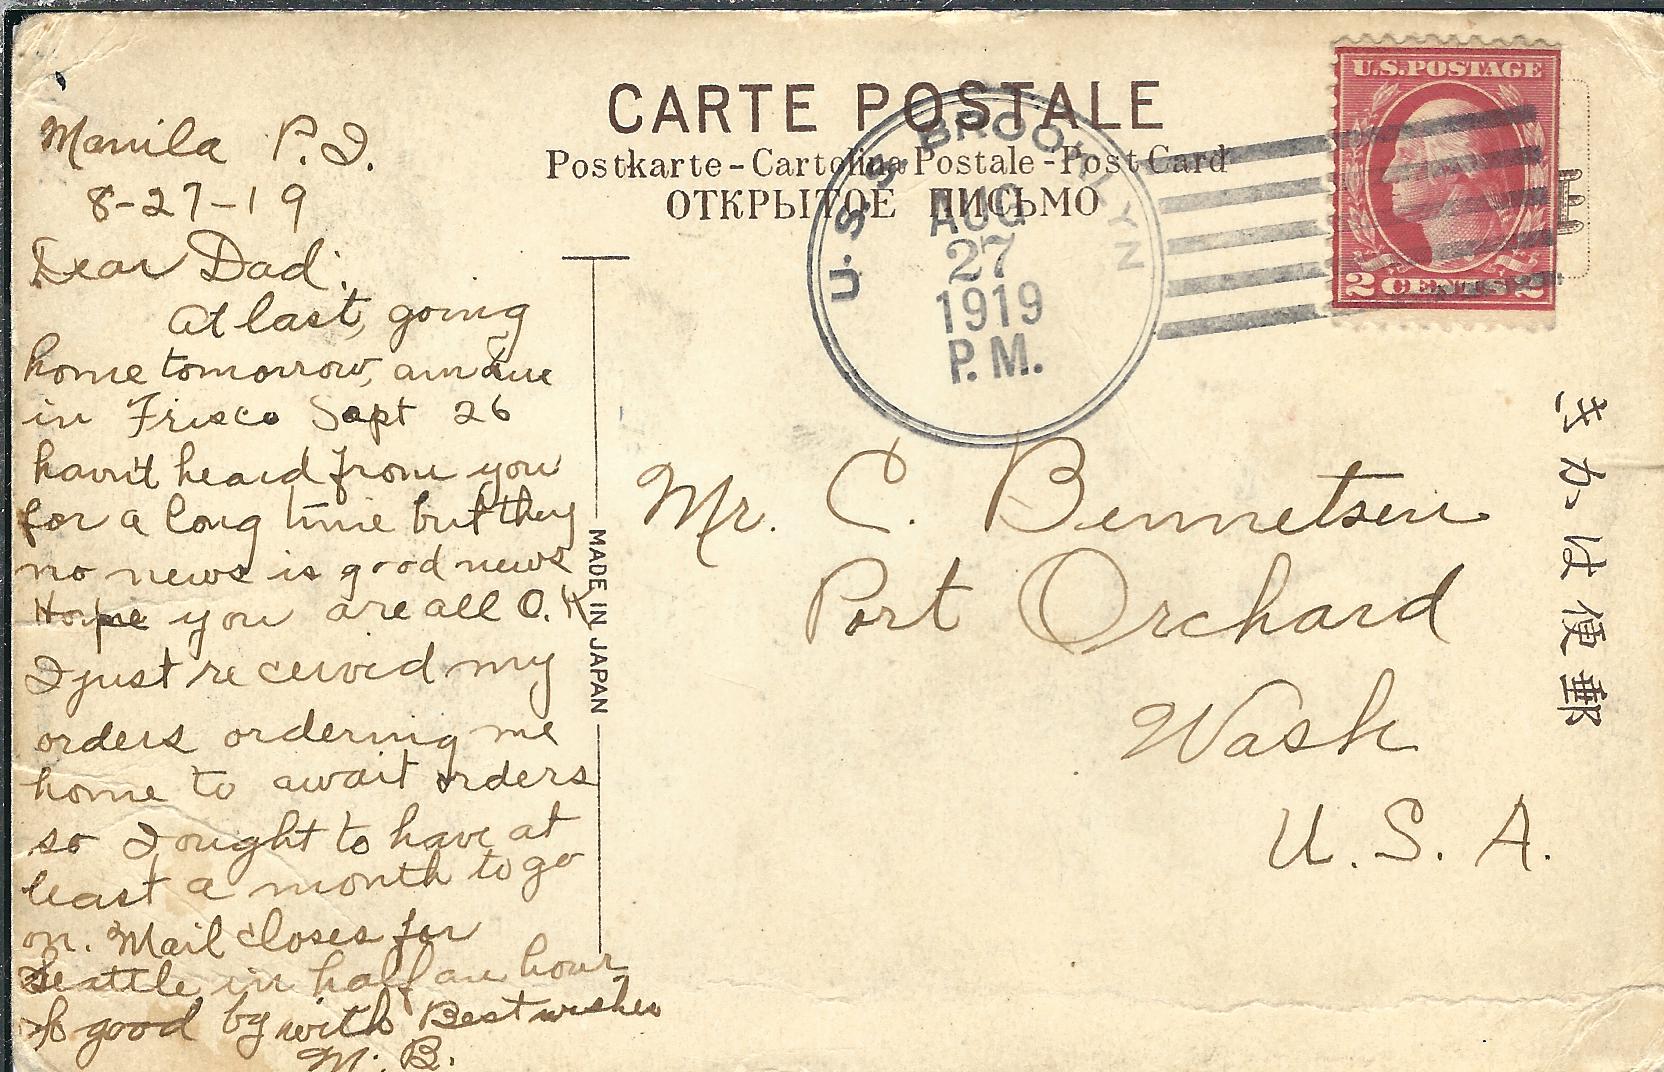 CARTE POSTALE
Postkarte - Cartolina Postale - Post Card
ОТКРЫТОЕ ПИСЬМО
U.S. POSTAGE
2 CENTS 2
U.S.S. BROOKLYN
AUG
27
1919
P.M.
Manila P.I.
8-27-19
Dear Dad:
At last, going
home tomorrow, am due
in Frisco Sept 26
havn't heard from you
for a long time but they
no news is good news
Hope you are all O.K
I just received my
orders ordering me
home to await orders
so I ought to have at
least a month to go
on. Mail closes for
Seattle in half an hour
so good by with Best wishes
M. B.
MADE IN JAPAN
Mr. C. Bennetsen
Port Orchard
Wash
U. S. A.
きかは便郵